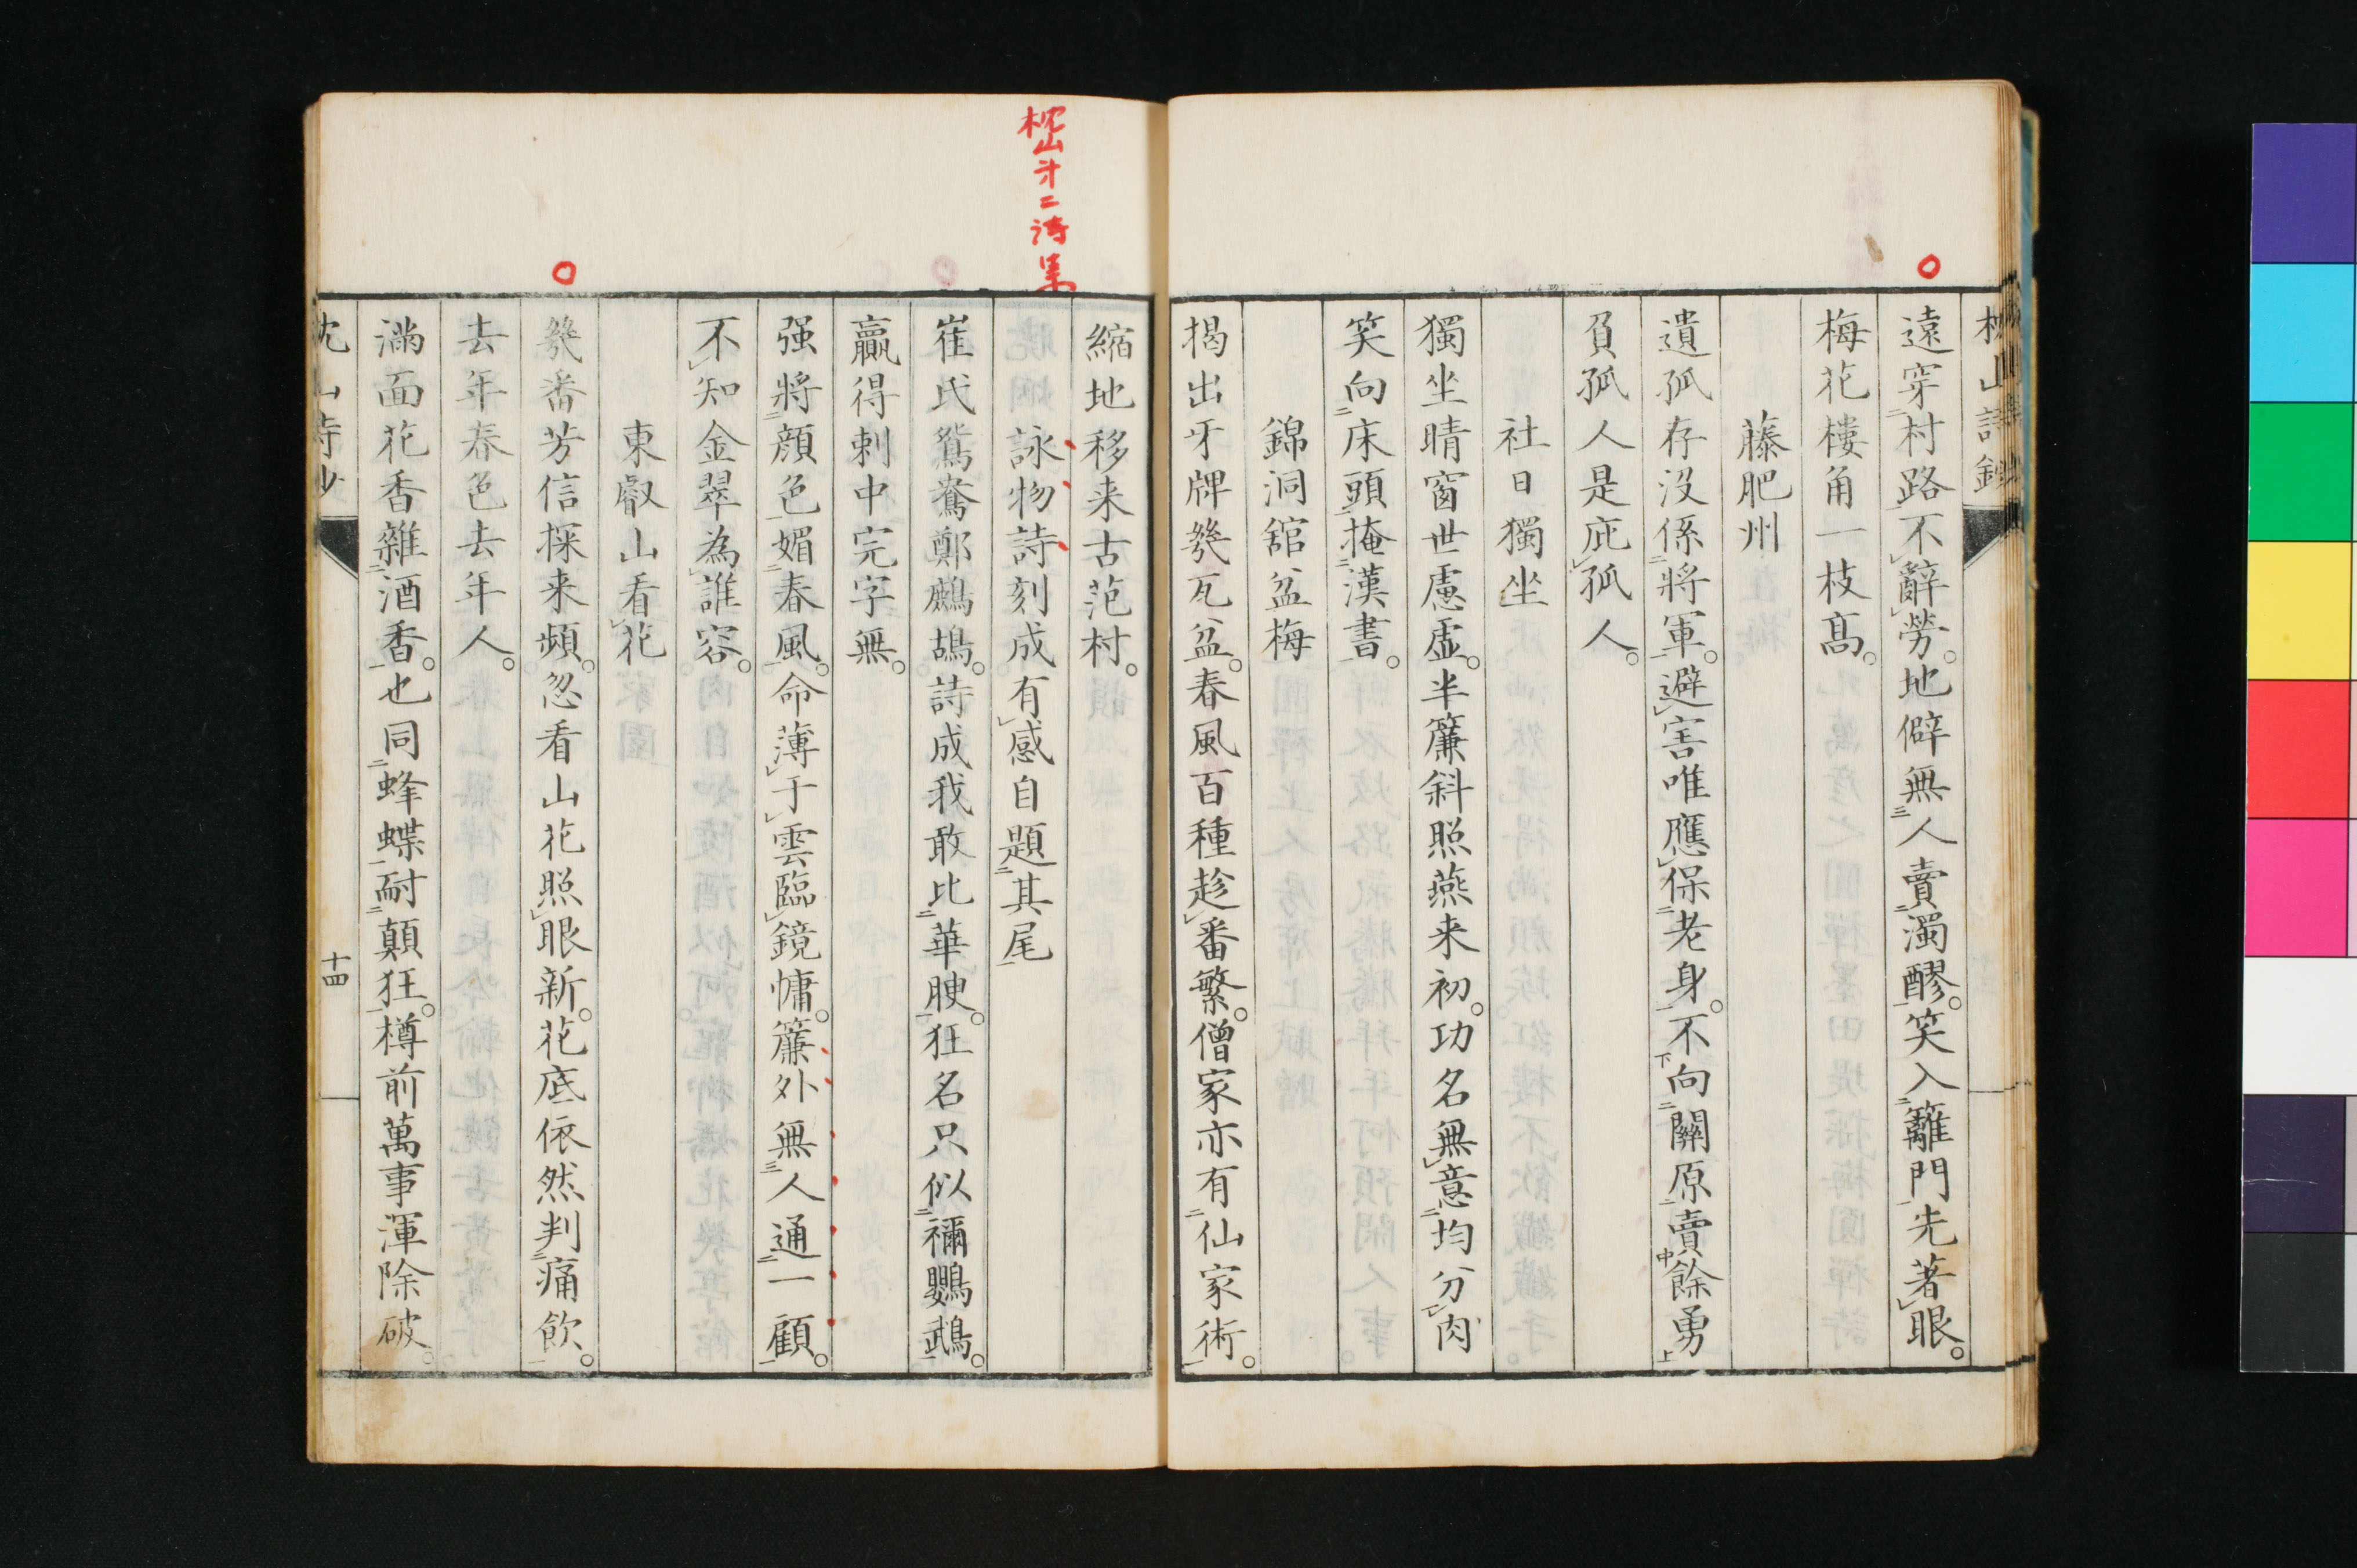 遠穿村路不辭勞。地僻無人賣濁醪。笑入籬門先著眼。
梅花樓角一枝高。
藤肥州
遺孤存沒係將軍。避害唯應保老身。不向關原賣餘勇
負孤人是庇孤人。
社日獨坐
獨坐晴窗世慮虛。半簾斜照燕来初。功名無意均分肉
笑向床頭掩漢書。
錦洞舘盆梅
揭出牙牌幾瓦盆。春風百種趁番繁。僧家亦有仙家術。
縮地移来古范村。
詠物詩刻成有感自題其尾
崔氏鴛鴦鄭鷓鴣。詩成我敢比華腴。狂名只似禰鸚鵡。
贏得刺中完字無。
强將顔色媚春風。命薄于雲臨鏡慵。簾外無人通一顧。
不知金翠為誰容。
東叡山看花
幾番芳信探来頻。忽看山花照眼新。花底依然判痛飲。
去年春色去年人。
滿面花香雜酒香。也同蜂蝶耐顛狂。樽前萬事渾除破。
枕山詩鈔
十四
枕山詩鈔
枕山才二詩集